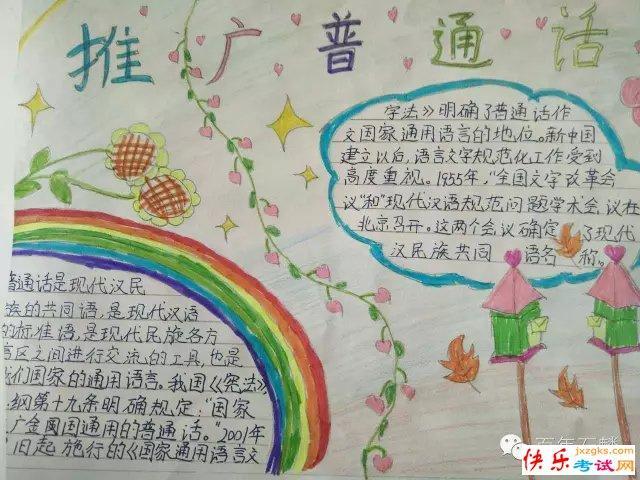 推广普通话
普通话是现代汉民
族的共同语,是现代汉语
的标准语,是现代民族各方
言区之间进行交流的工具,也是
我们国家的通用语言。我国《宪法》
纲第十九条明确规定:“国家
广全国通用的普通话。”2001年
日起施行的《国家通用语言文
字法》明确了普通话作
文国家通用语言的地位。新中国
建立以后,语言文字规范化工作受到
高度重视。1955年,“全国文字改革会
议”和“现代汉语规范问题学术会议在
北京召开。这两个会议确定了现代
汉民族共同语名称。
百年石麟
快乐考试网
jxzgks.com